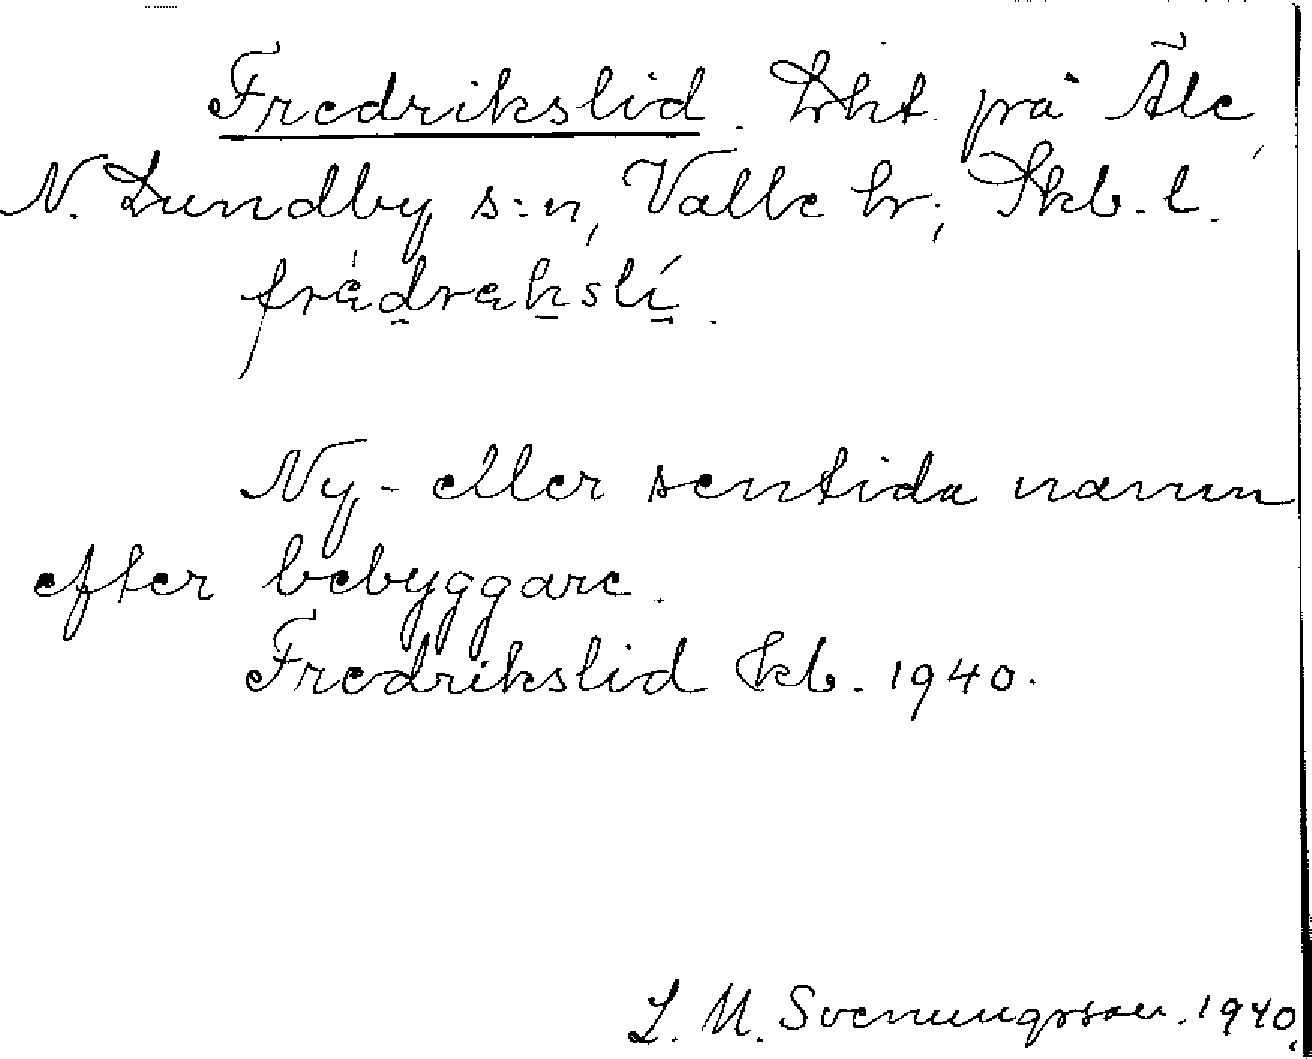 Fredrikslid. Lht. på Äle,
N. Lundby s:n, Valle hr; Skb. l.
frädrakslí.
Ny- eller sentida namn
efter bebyggare.
Fredrikslid kb. 1940.
L. M. Svenungsson. 1940.